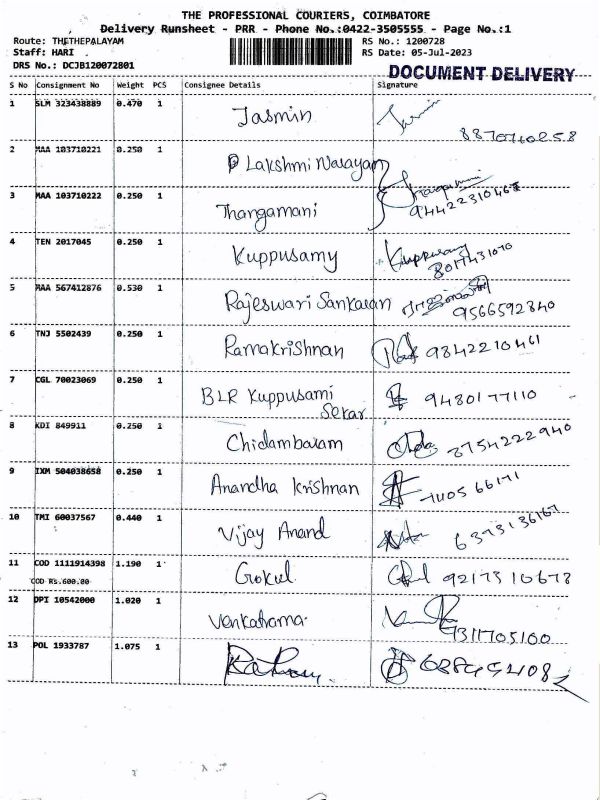 THE PROFESSIONAL COURIERS, COIMBATORE
Delivery Runsheet - PRR - Phone No.:0422-3505555 - Page No.:1
Route: THETHEPALAYAM RS No.: 1200728
Staff: HARI RS Date: 05-Jul-2023
DRS No.: DCJB120072801
DOCUMENT DELIVERY
S No Consignment No Weight PCS Consignee Details Signature
1 SLM 323438889 0.470 1 Jasmin
8870740258
2 MAA 103710221 0.250 1 P Lakshmi Narayan
3 MAA 103710222 0.250 1 Thangamani Thangamani
4 TEN 2017045 0.250 1 Kuppusamy Kuppusamy
5 MAA 567412876 0.530 1 Rajeswari Sankaran
9566592840
6 TNJ 5502439 0.250 1 Ramakrishnan 9842210461
7 CGL 70023069 0.250 1 BLR Kuppusami 9480177110
Sekar
8 KDI 849911 0.250 1 Chidambaram 8754222940
9 IXM 504038658 0.250 1 Anandha Krishnan
10 TMI 60037567 0.440 1 Vijay Anand 6373136167
11 COD 1111914398 1.190 1 Gokul
COD Rs.600.00
12 DPI 10542000 1.020 1 Venkatrama
9311705100
13 POL 1933787 1.075 1